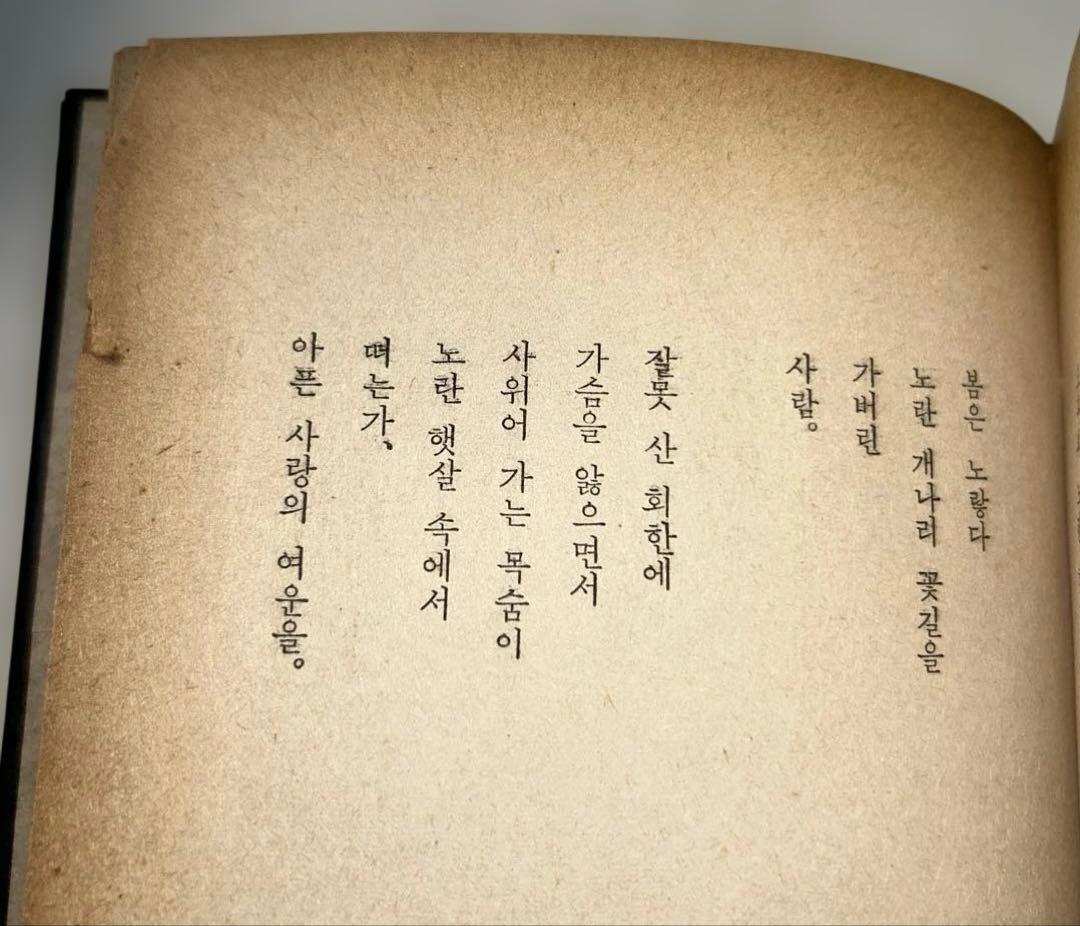 봄은 노랗다
노란 개나리 꽃길을
가버린
사람。
잘못 산 회한에
가슴을 앓으면서
사위어 가는 목숨이
노란 햇살 속에서
떠는가、
아픈 사랑의 여운을。